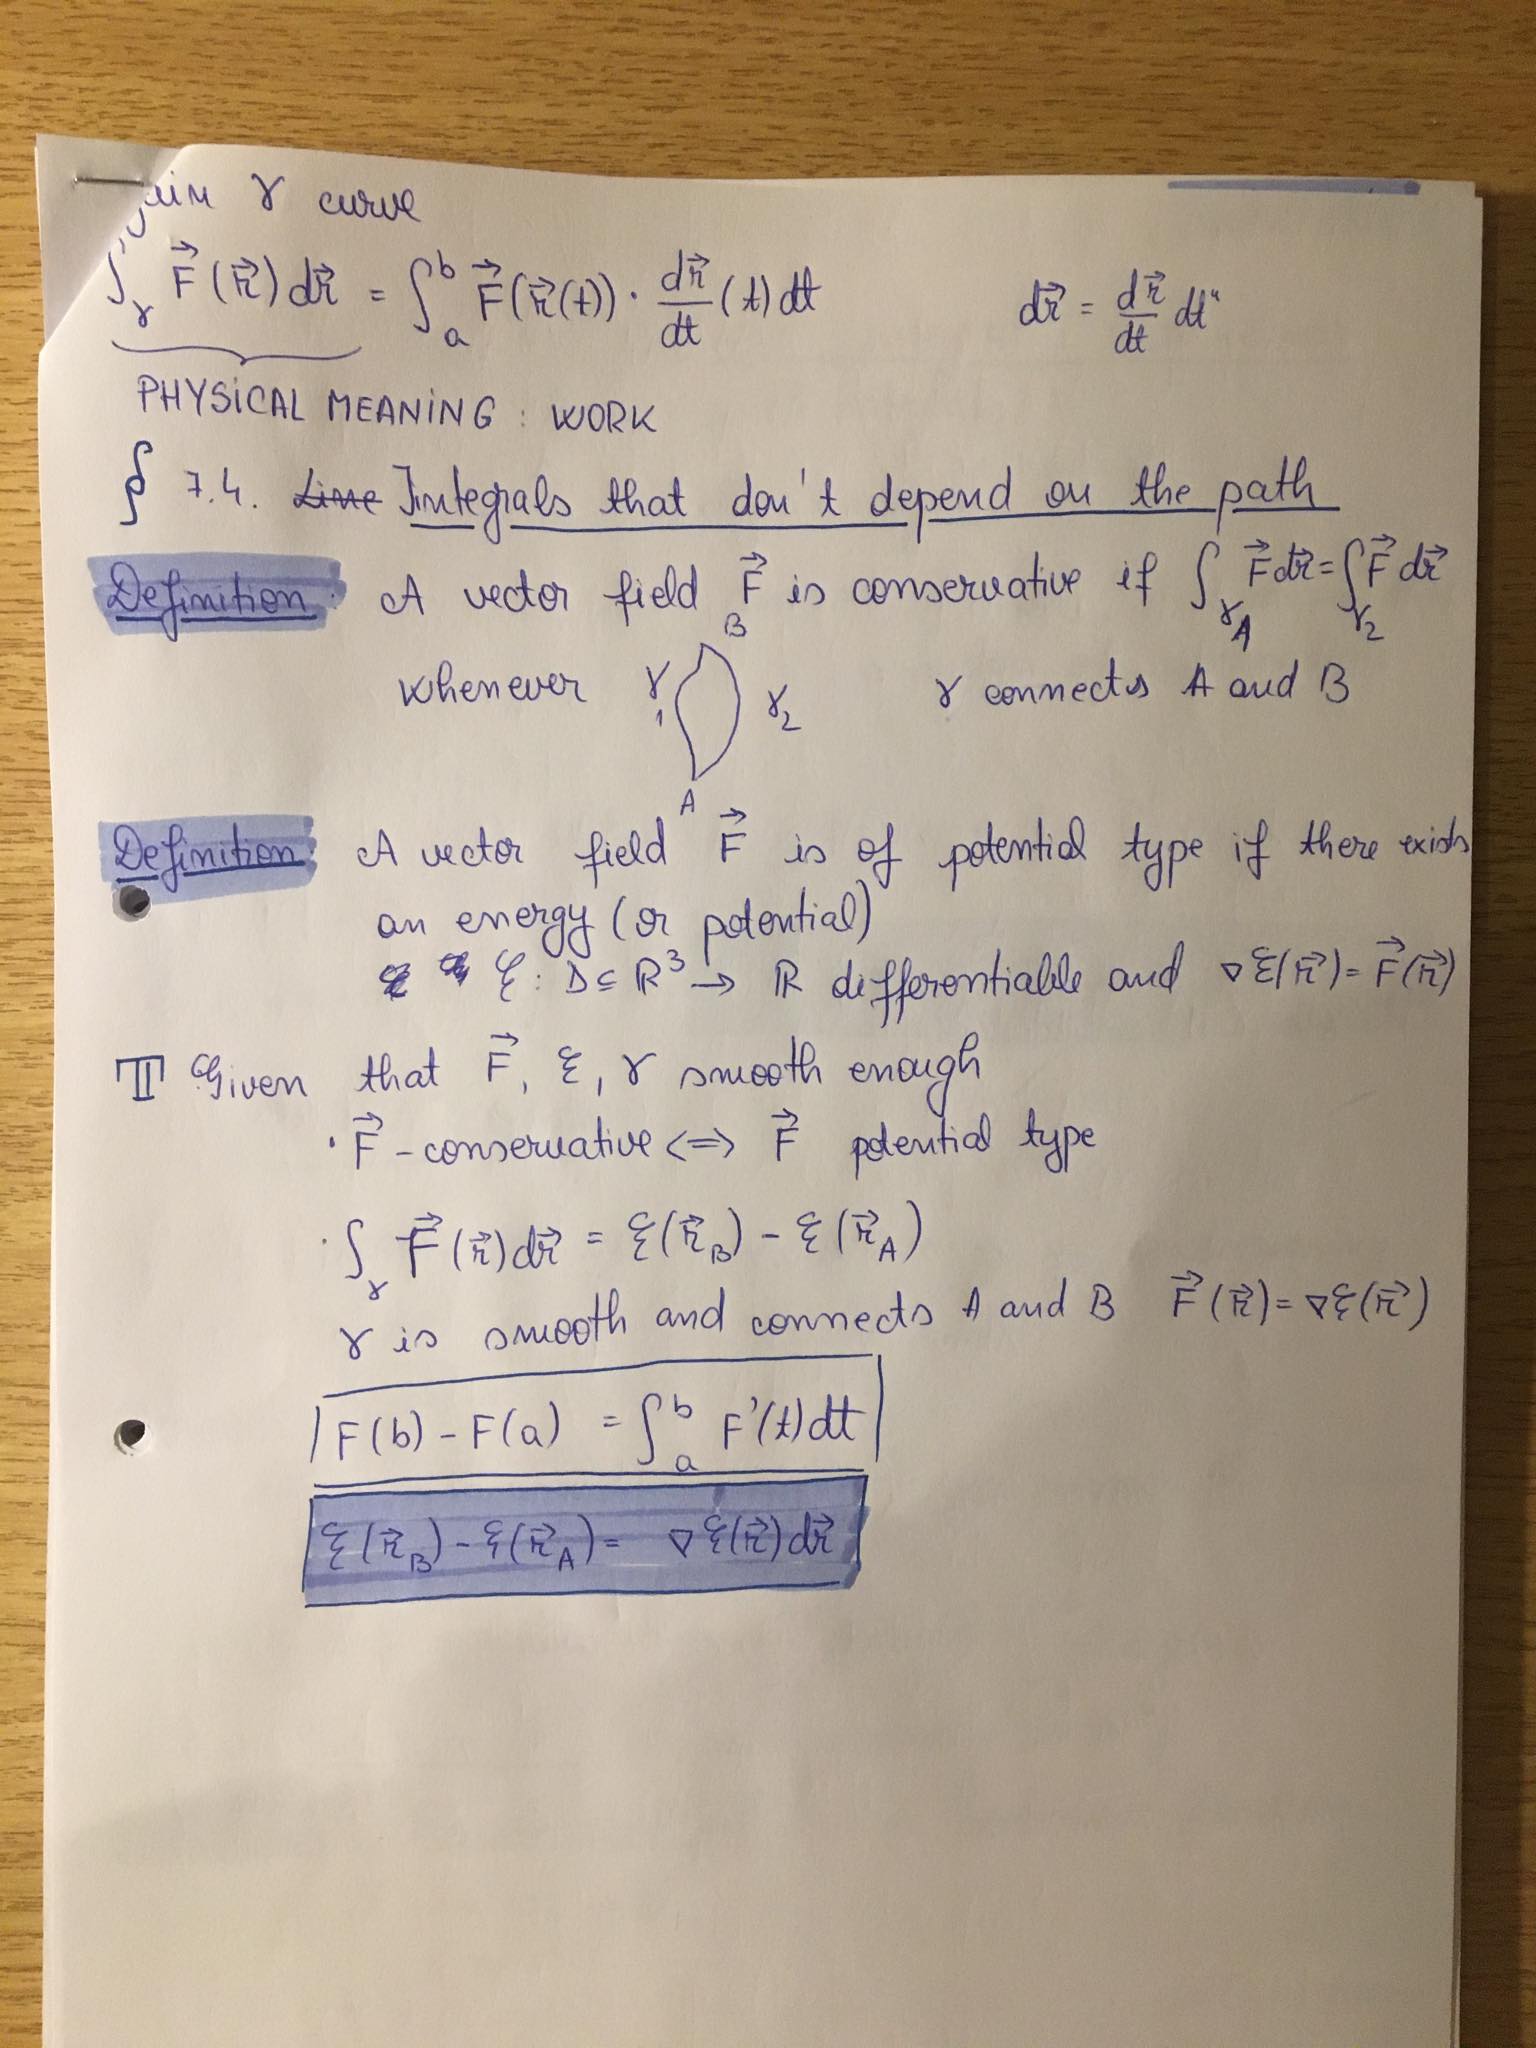 γ curve
∫_γ F⃗(r⃗)dr⃗ = ∫_a^b F⃗(r⃗(t)) · dr⃗/dt (t) dt    dr⃗ = dr⃗/dt dt"
PHYSICAL MEANING : WORK
§ 7.4. ~~Line~~ Integrals that don't depend on the path
Definition: A vector field F⃗ is conservative if ∫_γ1 F⃗dr⃗ = ∫_γ2 F⃗ dr⃗
B
whenever γ1 γ2 γ connects A and B
A
Definition: A vector field F⃗ is of potential type if there exists
an energy (or potential)
ξ : D ⊆ ℝ³ → ℝ differentiable and ∇ξ(r⃗) = F⃗(r⃗)
T Given that F⃗, ξ, γ smooth enough
· F⃗ - conservative <=> F⃗ potential type
· ∫_γ F⃗(r⃗)dr⃗ = ξ(r⃗_B) - ξ(r⃗_A)
γ is smooth and connects A and B F⃗(r⃗) = ∇ξ(r⃗)
F(b) - F(a) = ∫_a^b F'(t)dt
ξ(r⃗_B) - ξ(r⃗_A) = ∇ξ(r⃗)dr⃗